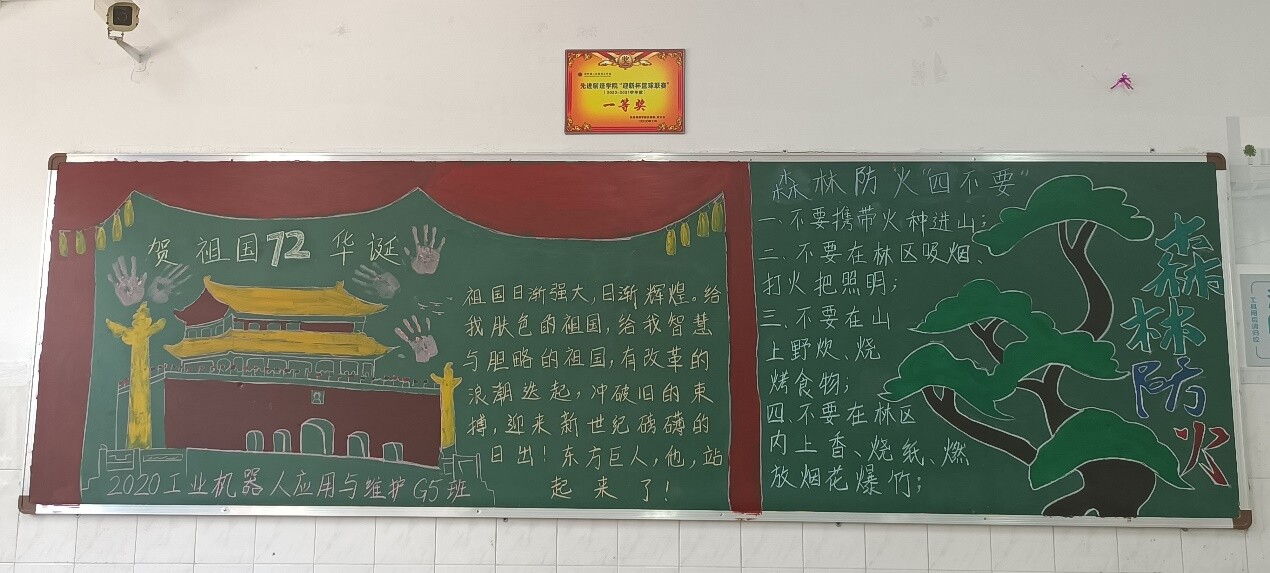 先进制造学院“迎新杯篮球联赛”
一等奖
贺祖国72华诞
祖国日渐强大,日渐辉煌。给
我肤色的祖国,给我智慧
与胆略的祖国,有改革的
浪潮迭起,冲破旧的束
搏,迎来新世纪磅礴的
日出!东方巨人,他,站
起来了!
2020工业机器人应用与维护G5班
森林防火“四不要”
一、不要携带火种进山;
二、不要在林区吸烟、
打火把照明;
三、不要在山
上野炊、烧
烤食物;
四、不要在林区
内上香、烧纸、燃
放烟花爆竹;
森林防火